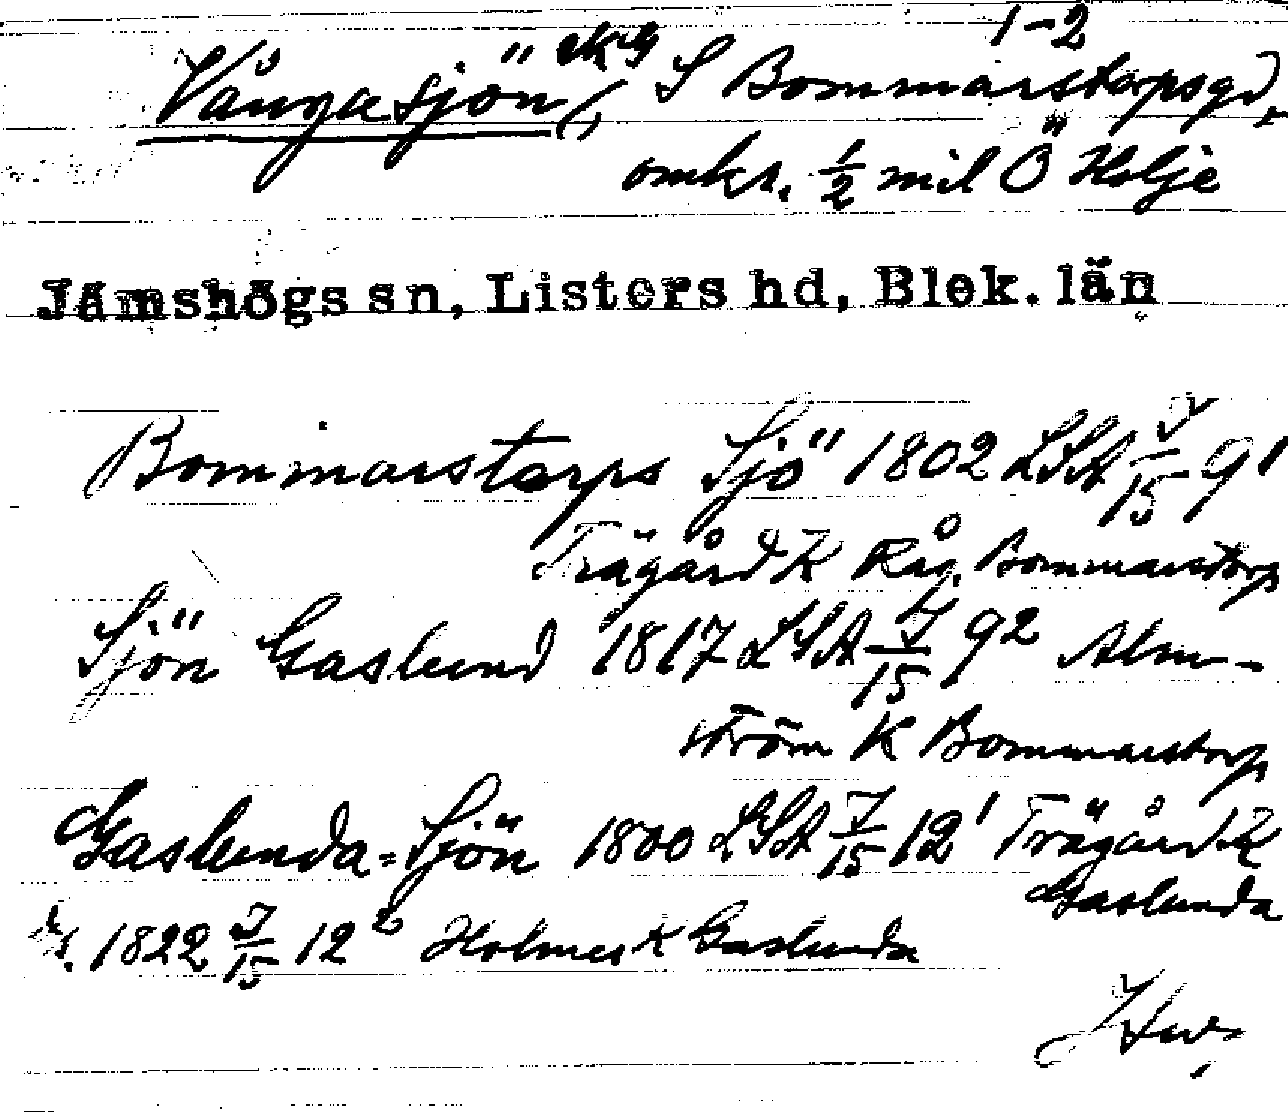 1-2
Vångasjön, ekG S Bommarstorpsgd,
omkr. 1/2 mil Ö Holje
Jämshögs sn, Listers hd, Blek. län
Bommarstorps Sjö 1802 LSA J/15 9¹
Trägård K Råg. Bommarstorp
Sjön Gaslund 1817 LSA J/15 9² Alm-
ström K Bommarstorp
Gaslunda=Sjön 1800 LSA J/15 12¹ Trägård K
Gaslunda
1822 J/15 12 Holmer K Gaslunda